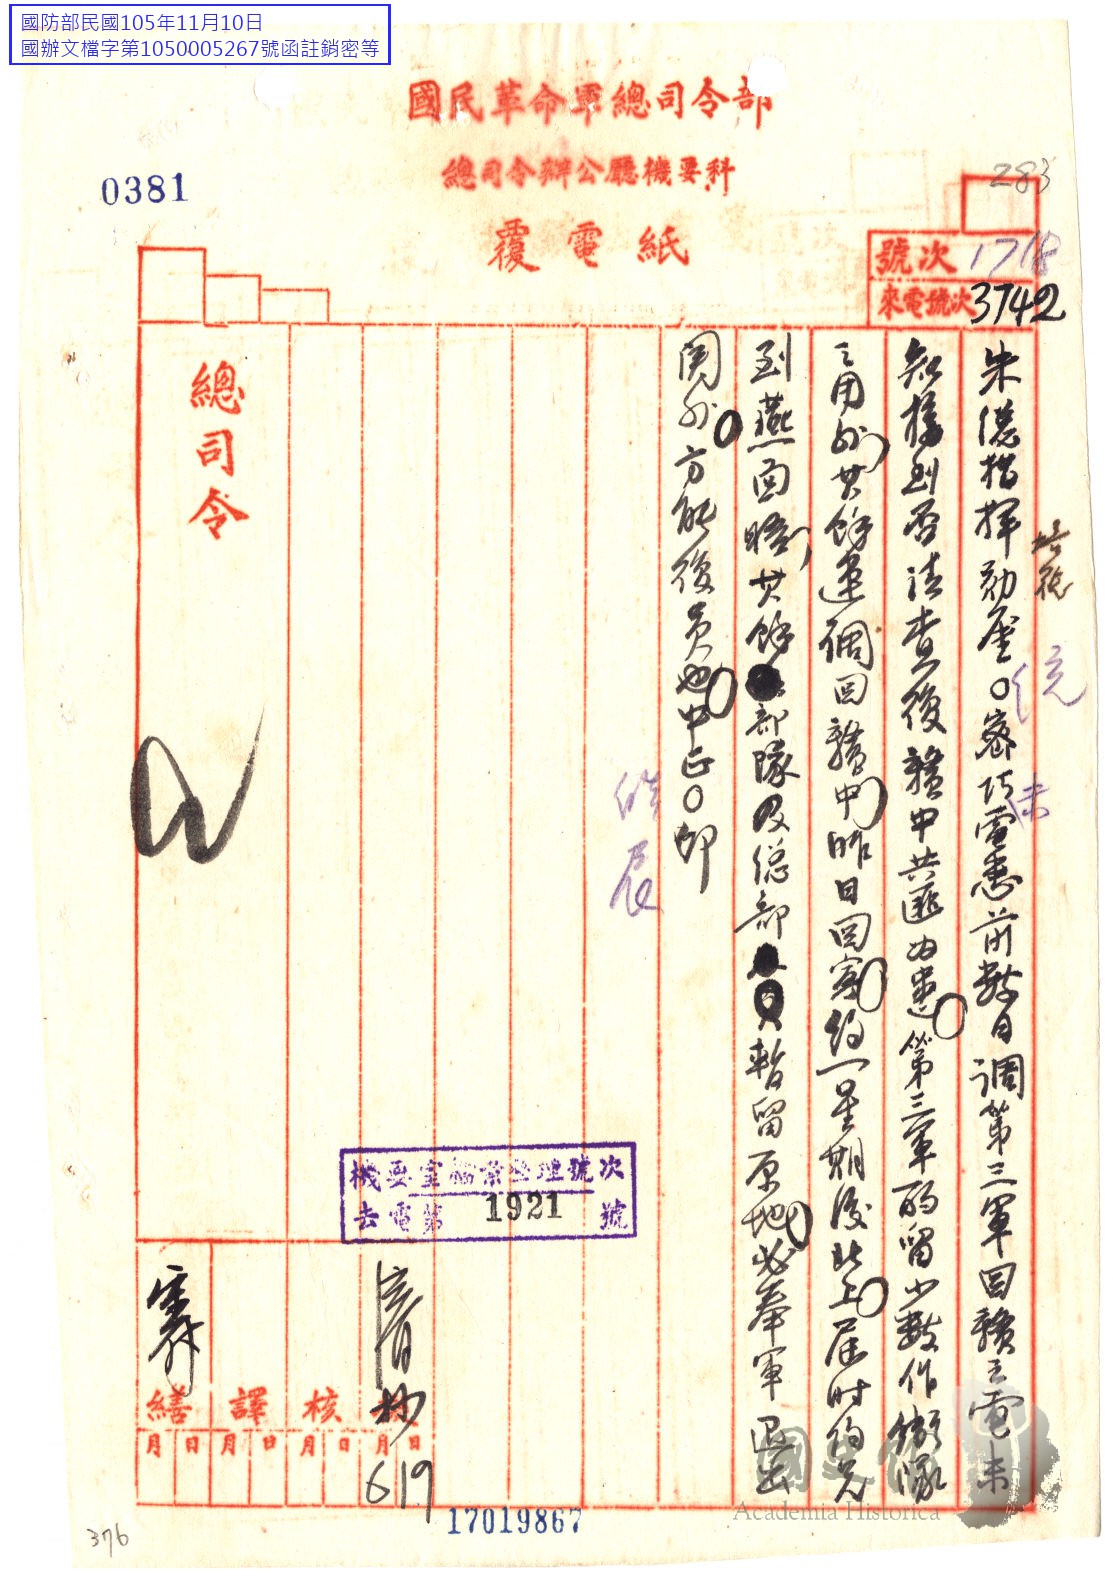 國防部民國105年11月10日
國辦文檔字第1050005267號函註銷密等
國民革命軍總司令部
總司令辦公廳機要科
覆電紙
0381
283
號次 1718
來電號次 3742
朱總指揮勛鑒○密 電悉前數日調第三軍回贛之電未
知接到否請查復贛中共匪為患第三軍酌留少數作衛隊
之用外其餘速調回贛中昨日回寧約一星期後北上屆時約兄
到燕面晤其餘部隊及總部 暫留原地必奉軍退出
關外方能復員也中正○印
培德
皓辰
總司令
機要室檔案管理號次
去電第 1921 號
繕 譯 核
月 日 月 日 月 日 月 日
619
17019867
376
國史館
Academia Historica